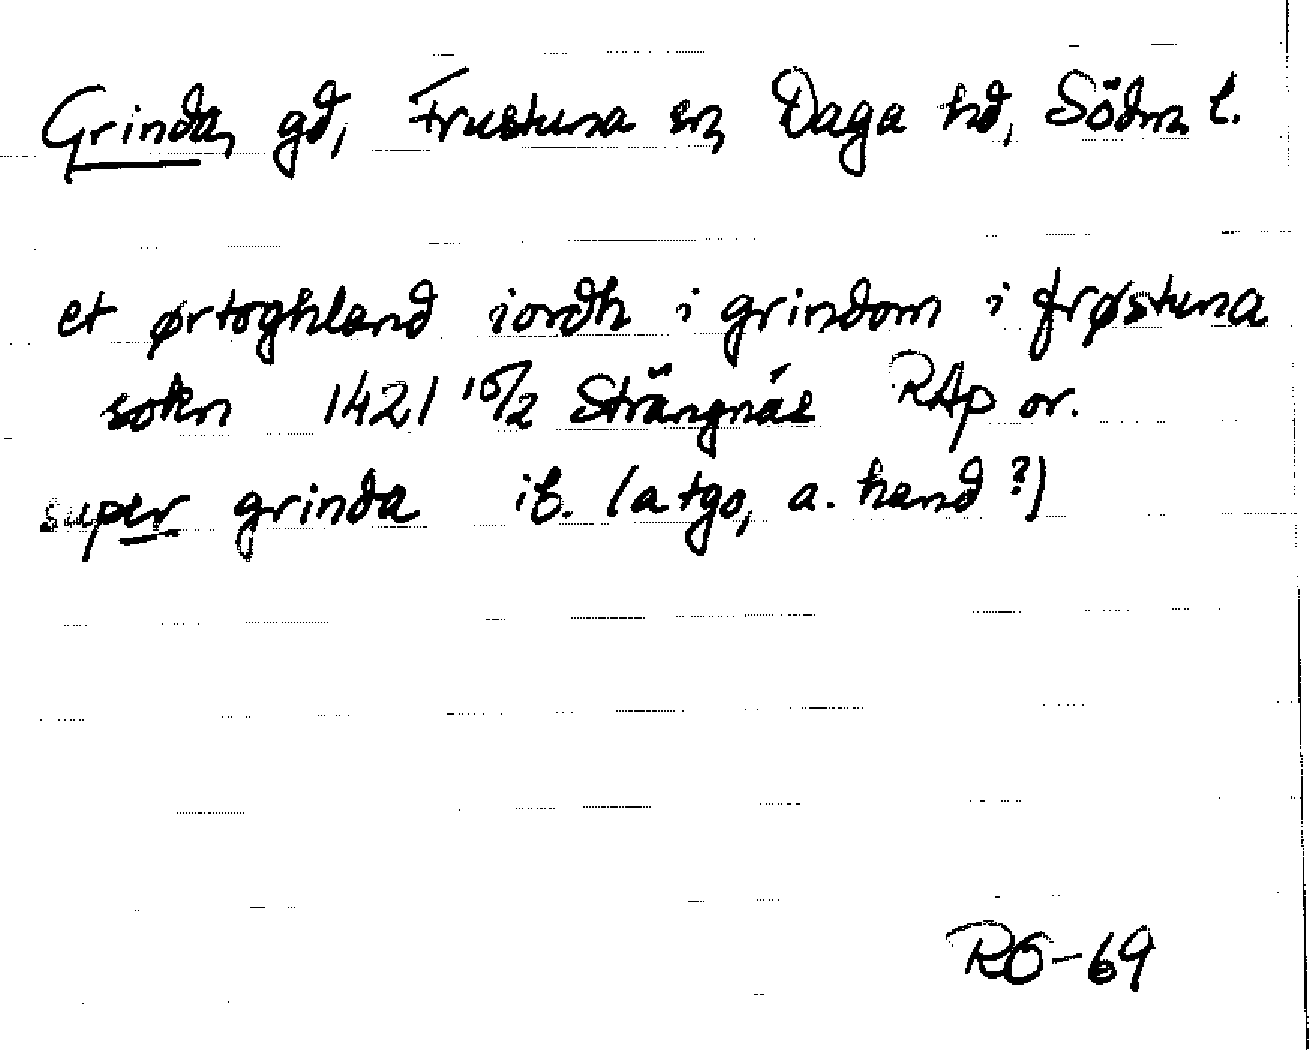 Grinda, gd, Frustuna sn, Daga hd, Södm. l.
et ørtoghland iordh i grindom i frøstuna
sokn 1421 15/2 Strängnäs RAp or.
super grinda ib. (atgo, a. hand?)
RO-69